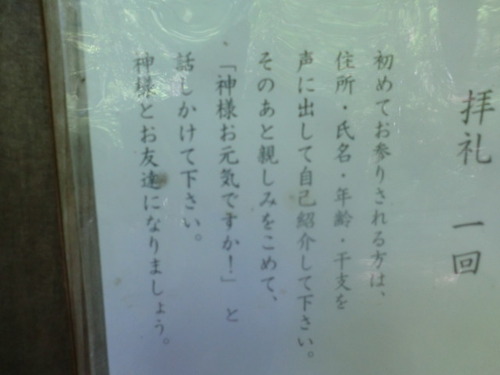 拝礼 一回
初めてお参りされる方は、
住所・氏名・年齢・干支を
声に出して自己紹介して下さい。
そのあと親しみをこめて、
「神様お元気ですか！」と
話しかけて下さい。
神様とお友達になりましょう。